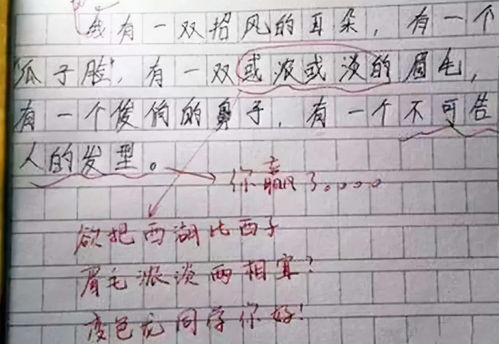 我有一双招风的耳朵，有一个
瓜子脸，有一双或浓或淡的眉毛，
有一个俊俏的鼻子，有一个不可告
人的发型。
你赢了。。。。
欲把西湖比西子
眉毛浓淡两相宜？
变色龙同学你好！